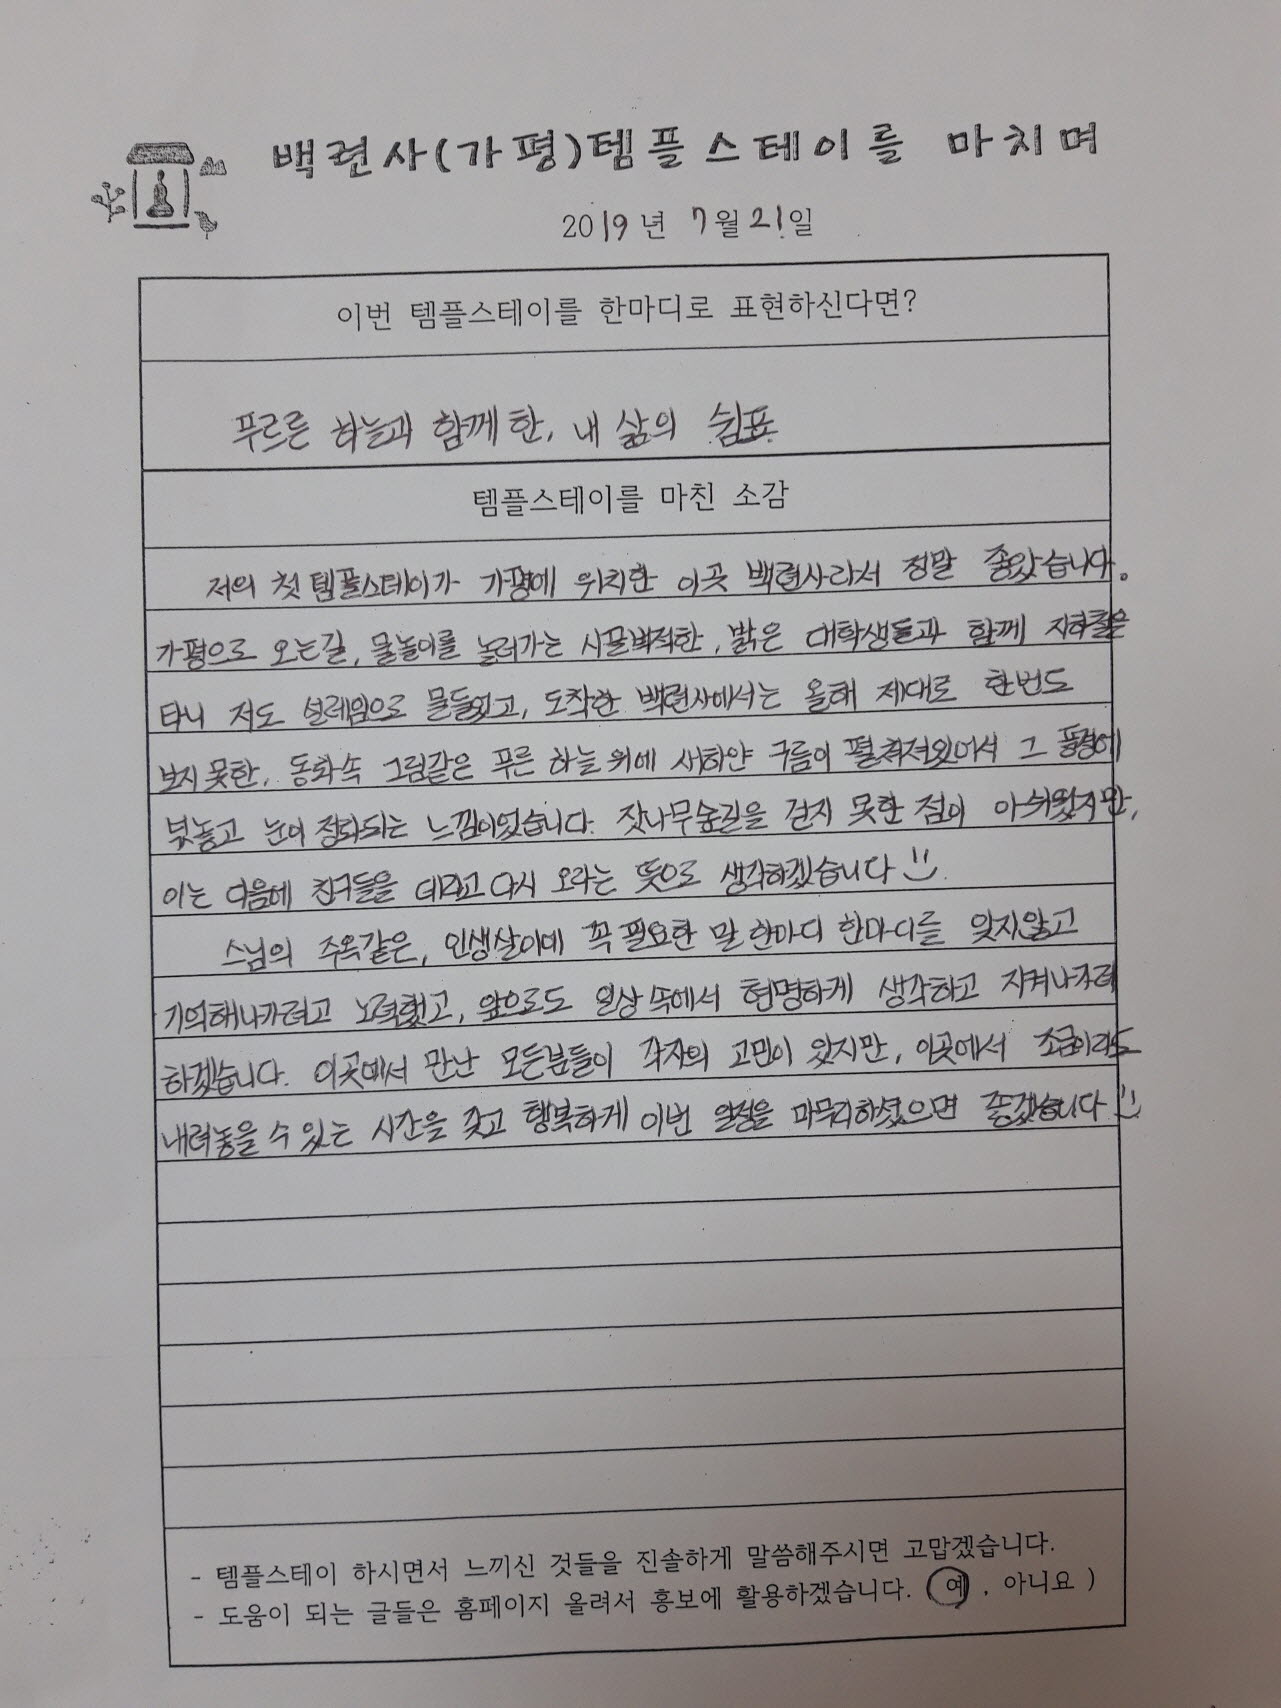 백련사(가평)템플스테이를 마치며
2019년 7월 21일
이번 템플스테이를 한마디로 표현하신다면?
푸르른 하늘과 함께한, 내 삶의 쉼표
템플스테이를 마친 소감
저의 첫 템플스테이가 가평에 위치한 이곳 백련사라서 정말 좋았습니다.
가평으로 오는길, 물놀이를 놀러가는 시끌벅적한, 밝은 대학생들과 함께 지하철을
타니 저도 설레임으로 물들었고, 도착한 백련사에서는 올해 제대로 한번도
보지 못한, 동화속 그림같은 푸른 하늘 위에 새하얀 구름이 펼쳐져있어서 그 풍경에
넋놓고 눈이 정화되는 느낌이었습니다. 잣나무숲길을 걷지 못한 점이 아쉬웠지만,
이는 다음에 친구들을 데리고 다시 오라는 뜻으로 생각하겠습니다
스님의 주옥같은, 인생살이에 꼭 필요한 말 한마디 한마디를 잊지않고
기억해나가려고 노력했고, 앞으로도 일상 속에서 현명하게 생각하고 지켜나가려
하겠습니다. 이곳에서 만난 모든분들이 각자의 고민이 있지만, 이곳에서 조금이라도
내려놓을 수 있는 시간을 갖고 행복하게 이번 일정을 마무리하셨으면 좋겠습니다
- 템플스테이 하시면서 느끼신 것들을 진솔하게 말씀해주시면 고맙겠습니다.
- 도움이 되는 글들은 홈페이지 올려서 홍보에 활용하겠습니다. ( 예 , 아니요 )